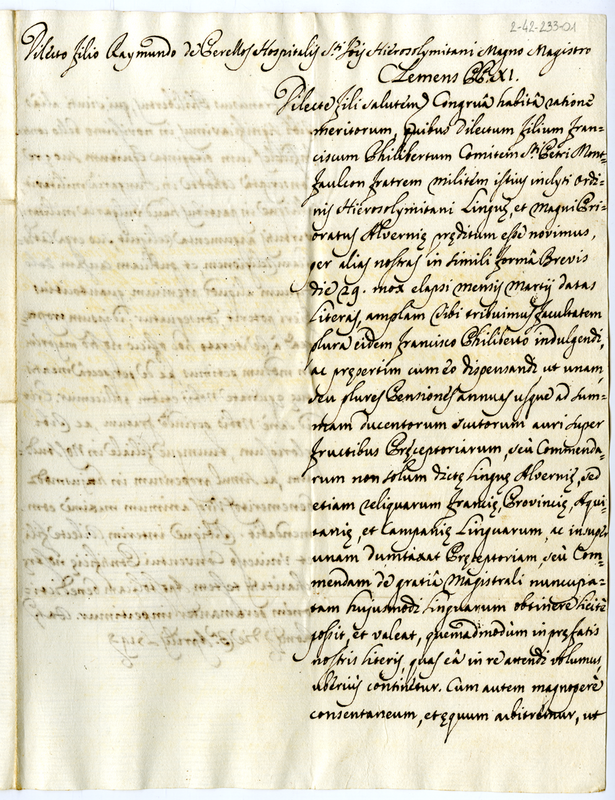 2-42-233-01
Dilecto Filio Raymundo de Perellos Hospitalis Sti. Jois Hierosolymitani Magno Magistro
Clemens PP. XI.
Dilecte Fili salutem Congruâ habitâ ratione
meritorum, quibus Dilectum Filium Fran=
ciscum Philibertum Comitem Sti. Petri Mont=
faulcon fratrem militem istius inclyti Ordi=
nis Hierosolymitani Linguę, et Magni Pri=
oratus Alvernię pręditum esse novimus,
per alias nostras in simili forma Brevis
die 29. mox elapsi mensis Martij datas
Literas, amplam tibi tribuimus facultatem
plura eidem Francisco Philiberto indulgendi,
ac pręsertim cum eo dispensandi ut unam,
seu plures Pensiones annuas usque ad sum=
mam ducentorum scutorum auri super
fructibus Pręceptoriarum, seù Commenda=
rum non solùm dictę Linguę Alvernię, sed
etiam reliquarum Francię, Provincię, Aqui=
tanię, et Campanię Linguarum, ac insuper
unam dumtaxat Pręceptoriam, seù Com=
mendam de gratiâ Magistrali nuncupa=
tam hujusmodi Linguarum obtinere licitè
possit, et valeat, quemadmodùm in pręfatis
nostris literis, quas eâ in re attendi volumus,
uberiùs continetur. Cum autem magnoperè
consentaneum, et ęquum arbitremur, ut